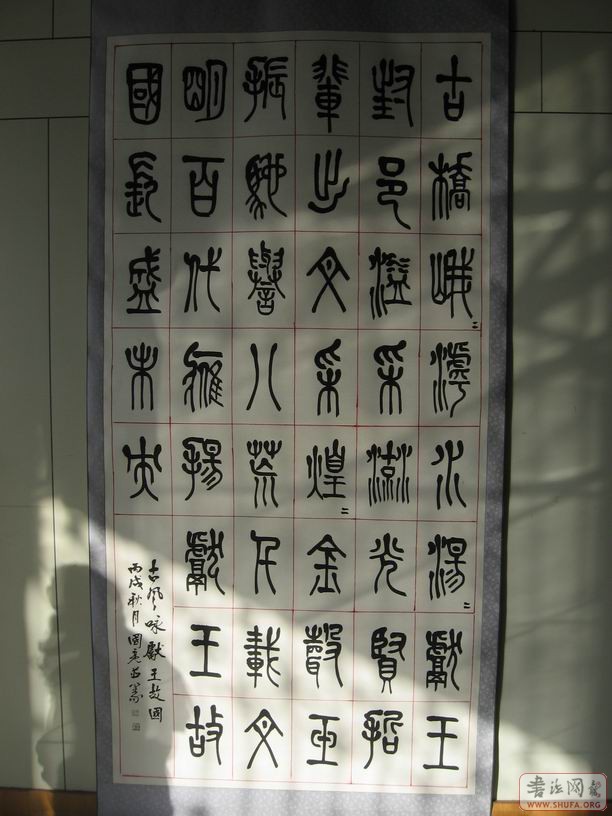 古橋峨=滹水湯=獻王
封邑溢采流光賢哲
輩出文采煌=金聲玉
振馳譽八荒千載文
明百代揚獻王故
國長盛未央
古風咏獻王故國
丙戌秋月國亮
書法网摄
WWW.SHUFA.ORG